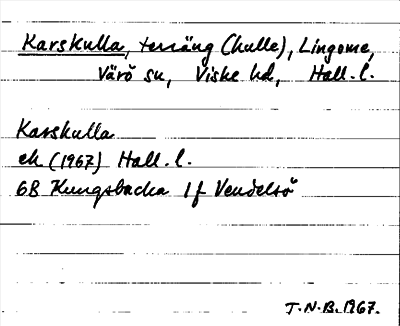 Karskulla, terräng (kulle), Lingome,
Värö sn, Viske hd, Hall. l.
Karskulla
ek (1967) Hall. l.
6B Kungsbacka 1f Vendelsö
T.N.B. 1967.